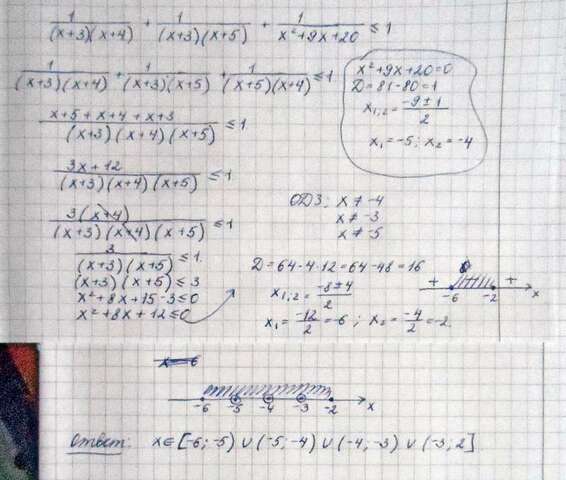 1/((x+3)(x+4)) + 1/((x+3)(x+5)) + 1/(x²+9x+20) ≤ 1
1/((x+3)(x+4)) + 1/((x+3)(x+5)) + 1/((x+5)(x+4)) ≤ 1
x²+9x+20=0
D=81-80=1
x₁,₂ = (-9±1)/2
x₁=-5; x₂=-4
(x+5+x+4+x+3)/((x+3)(x+4)(x+5)) ≤ 1
(3x+12)/((x+3)(x+4)(x+5)) ≤ 1
3(x+4)/((x+3)(x+4)(x+5)) ≤ 1
ОДЗ: x ≠ -4
x ≠ -3
x ≠ -5
3/((x+3)(x+5)) ≤ 1
(x+3)(x+5) ≤ 3
x²+8x+15-3≤0
x²+8x+12≤0
D=64-4·12=64-48=16
x₁,₂ = (-8±4)/2
x₁ = -12/2 = -6; x₂ = -4/2 = -2.
+ +
-6 -2 x
x=6
-6 -5 -4 -3 -2 x
Ответ: x∈[-6;-5)∪(-5;-4)∪(-4;-3)∪(-3;2]